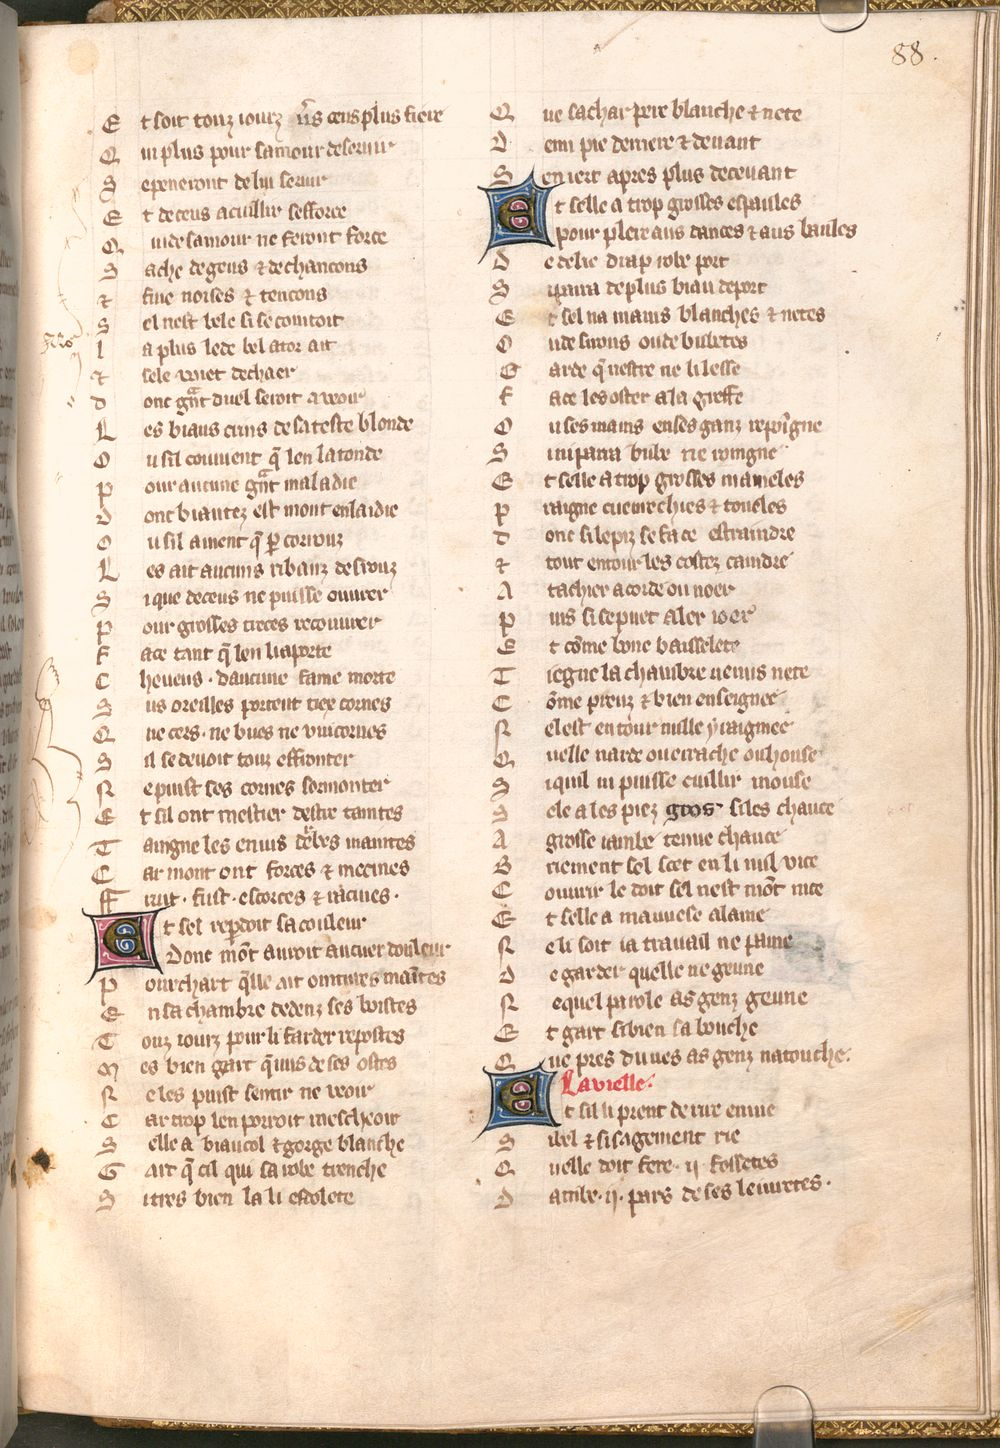 88.
E t soit touz iourz vẽs ceus plus fiere
Q ui plus pour samour deseruir
S e peneront de lui seruir
E t de ceus acuillir sefforce
Q ui de samour ne feront force
S ache de geus & de chancons
& fuie noises & tencons
S el nest bele si se cointoit
l a plus lede bel ator ait
& sele veiet dechaer
d onc gñt duel seroit a veoir
L es biaus crins de sa teste blonde
O u sil couuient q̃ len la tonde
p our aucune gñt maladie
D ont biautez est mont enlaidie
O u sil auient q̃ p corrouz
L es ait aucuns ribauz desrouz
S i que de ceus ne puisse ouurer
P our grosses treces recouurer
F ace tant q̃ len li aporte
C heueus . daucune fame morte
S us oreilles portent tiex cornes
Q ue cers . ne bues ne vnicornes
S il se deuoit touz effronter
R e puist ses cornes sormonter
E t sil ont mestier destre taintes
T aingne les en ius derbes maintes
C ar mont ont forces & mecines
FF ruit . fust . escorces & racines .
E t sel reperdoit sa couleur
Donc mõt auroit au cuer douleur
P ourchart q̃lle ait ointures maĩtes
E n sa chambre dedenz ses boistes
T ouz iourz pour li farder repostes
M es bien gart q̃ nus de ses ostes
R e les puist sentir ne veoir
C ar trop len porroit mescheoir
S elle a biau col & gorge blanche
G art q̃ cil qui sa robe trenche
S i tres bien la li escolete
Q ue sa char pere blanche & nete
D emi pie derriere & deuant
S en iert apres plus deceuant
E t selle a trop grosses espaules
pour plere aus dances & aus baules
D e delie drap robe port
S i parra de plus biau deport
E t sel na mains blanches & netes
O u de sirons ou de bubetes
G arde q̃ nestre ne li lesse
F ace les oster a la greffe
O u ses mains en ses ganz repoĩgne
S i ni parra bube ne roingne
E t selle a trop grosses mameles
P raigne cueurechies & touelles
D onc si le piz se face estraindre
& tout entour les costez caindre
A tachier a corde ou noer
P uis si se puet aler ioer
E t cõme bone baisselete
T iegne la chambre uenus nete
C õme preuz & bien enseignee
R el est entour nulle yraignee
Q uelle narde ou errache ou house
S i quil ni puisse cuillir mouse
S ele a les piez gros siles chauce
A grosse iambe tenue chauce
B riement sel scet en li nul vice
C ouurir le doit sel nest mõt nice
E t selle a mauuese alaine
R e li soit ia trauail ne paine
D e garder quelle ne geune
R e quel parole as genz geune
E t gart si bien sa bouche
Q ue pres du nes as genz natouche .
La vielle .
E t sil li prent de rire enuie
S i bel & si sagement rie
Q uelle doit fere . ij . fossetes
D ambe . ij . pars de ses leuretes .